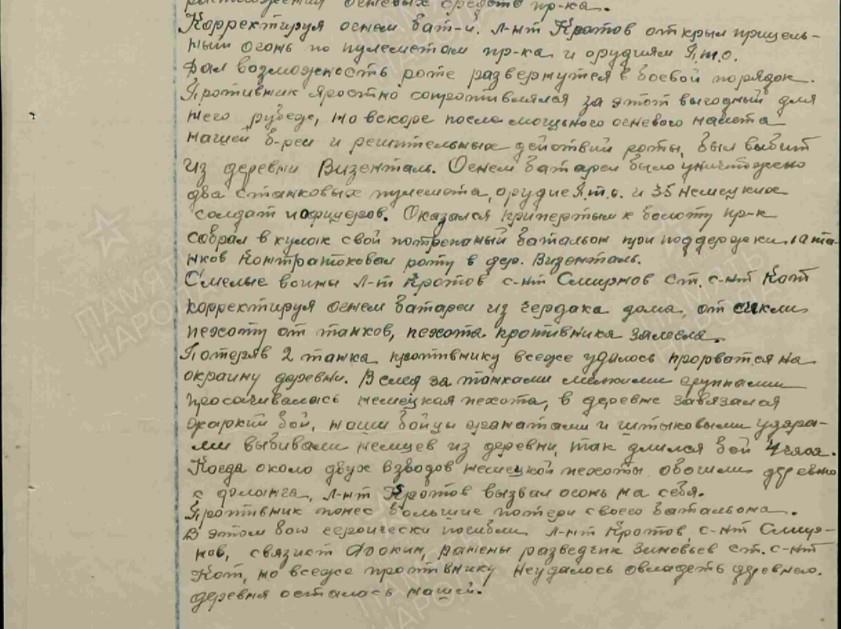 расположения огневых средств пр-ка.
Корректируя огнем бат-и. л-нт Кротов открыл прицель-
ный огонь по пулеметам пр-ка и орудиям П.т.о.
Дал возможность роте развернутся в боевой порядок.
Противник яростно сопротивлялся за этот выгодный для
него рубеж, но вскоре после мощьного огневого налета
нашей б-реи и решительных действий роты, был выбит
из деревни Визенталь. Огнем батареи было уничтожено
два станковых пулемета, орудие П.т.о. и 35 немецких
солдат и офицеров. Оказался припертым к болоту пр-к
собрал в кулак свой потрепаный батальон при поддержки 10 та-
нков контратоковал роту в дер. Визенталь.
Смелые воины Л-нт Кротов с-нт Смирнов ст. с-нт Кот
корректируя огнем батареи из чердака дома, отсикли
пехоту от танков, пехота противника залегла.
Потеряв 2 танка противнику всеже удалось прорватся на
окраину деревни. Вслед за танками мелкими группами
просачивалась немецкая пехота, в деревне завязался
жаркий бой, наши бойцы гранатами и штыковыми удара-
ми выбивали немцев из деревни, так длился бой 4 часа.
Когда около двух взводов немецкой пехоты обошли деревню
с фланга, л-нт Кротов вызвал огонь на себя.
Противник понес большие потери своего батальона.
В этом бою героически погибли л-нт Кротов, с-нт Смир-
нов, связист ранены разведчик Зиновьев ст. с-нт
Кот, но всеже противнику неудалось овладеть деревнею.
деревня осталась нашей.
ПАМЯТЬ
НАРОДА